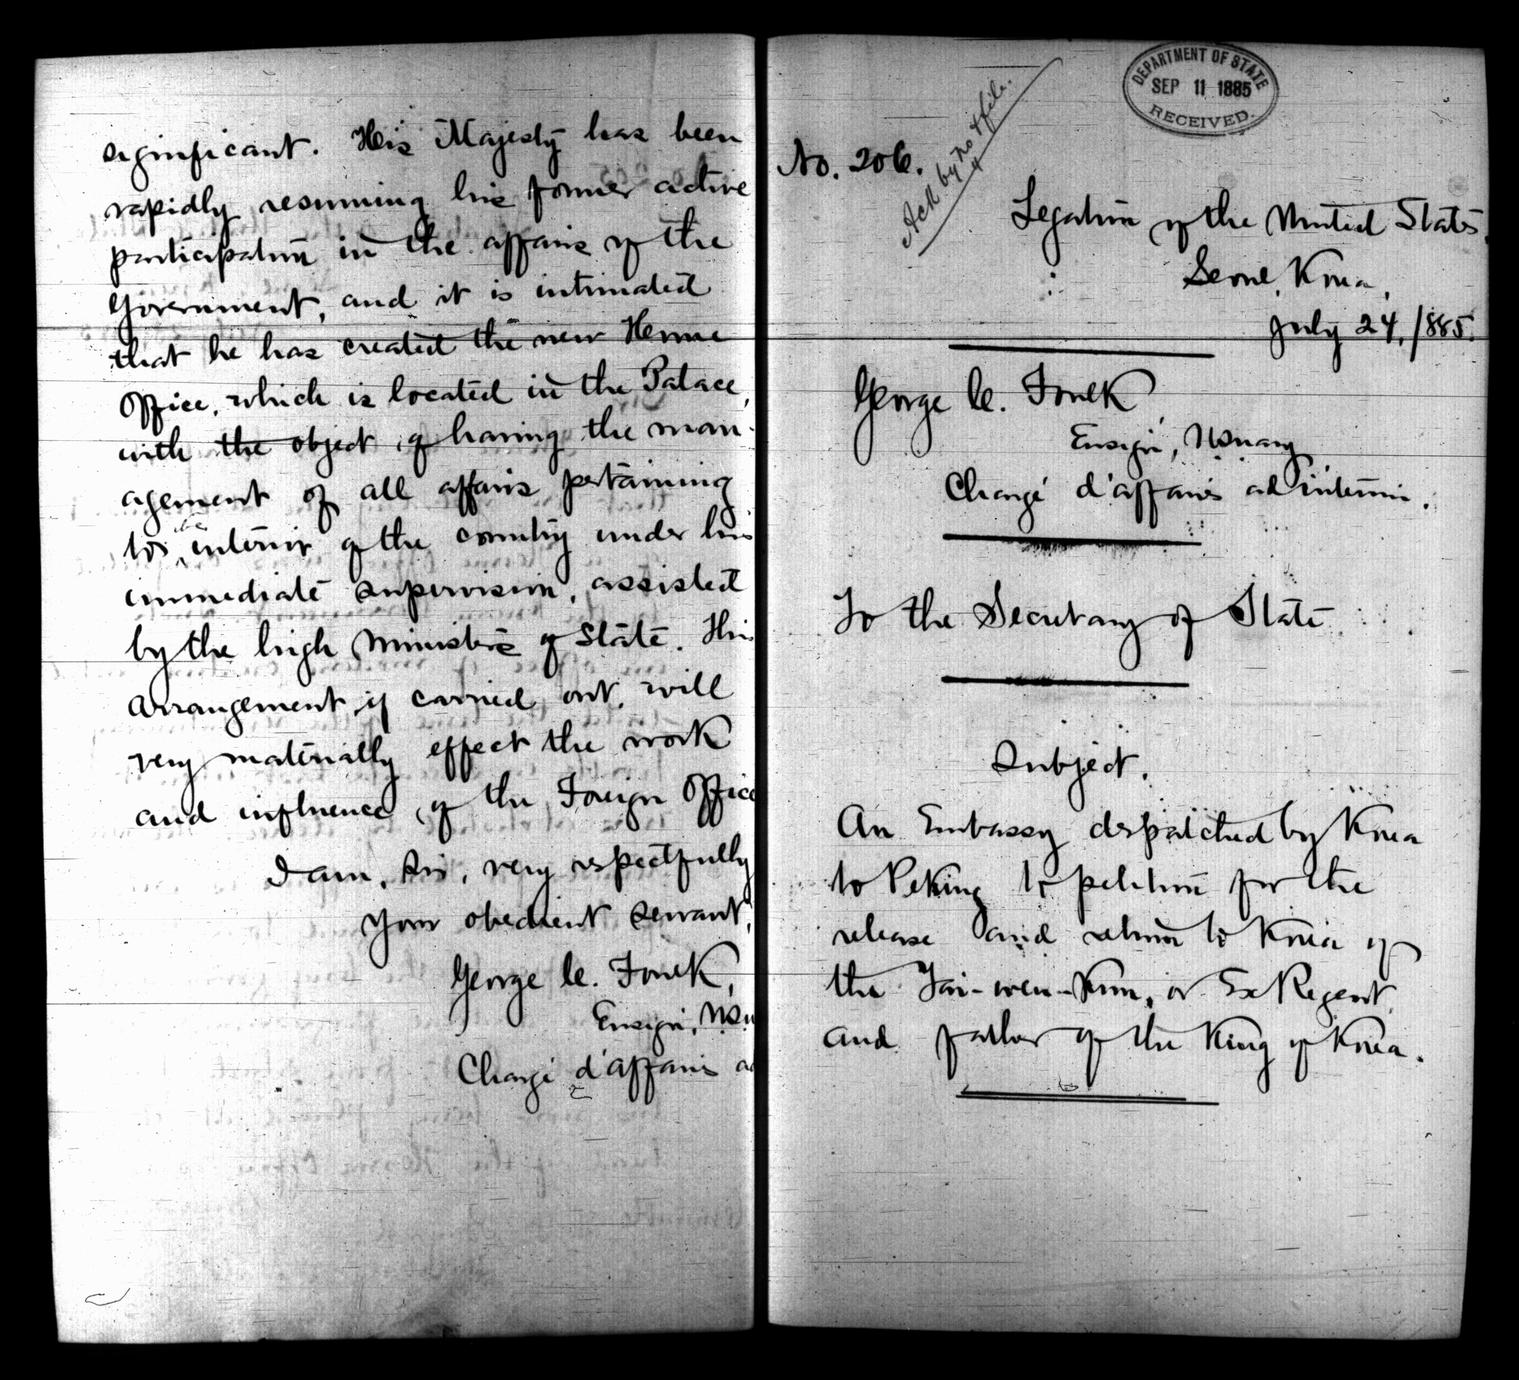 significant. His Majesty has been
rapidly resuming his former active
participation in the affairs of the
Government, and it is intimated
that he has created the new Home
Office, which is located in the Palace,
with the object of having the man-
agement of all affairs pertaining
to the interior of the country under his
immediate supervision, assisted
by the high Ministers of State. This
arrangement, if carried out, will
very materially effect the work
and influence of the Foreign Office
I am, Sir, very respectfully
your obedient servant,
George C. Foulk,
Ensign, U.S.N
Chargé d'affaires ad
DEPARTMENT OF STATE
SEP 11 1885
RECEIVED.
Ack by no 4 file.
No. 206.
Legation of the United States.
Seoul, Korea,
July 24, 1885.
George C. Foulk
Ensign, U.S. Navy
Chargé d'affaires ad interim.
To the Secretary of State
Subject.
An Embassy despatched by Korea
to Peking to petition for the
release and return to Korea of
the Tai-wen-Kun, or Ex Regent
and father of the King of Korea.